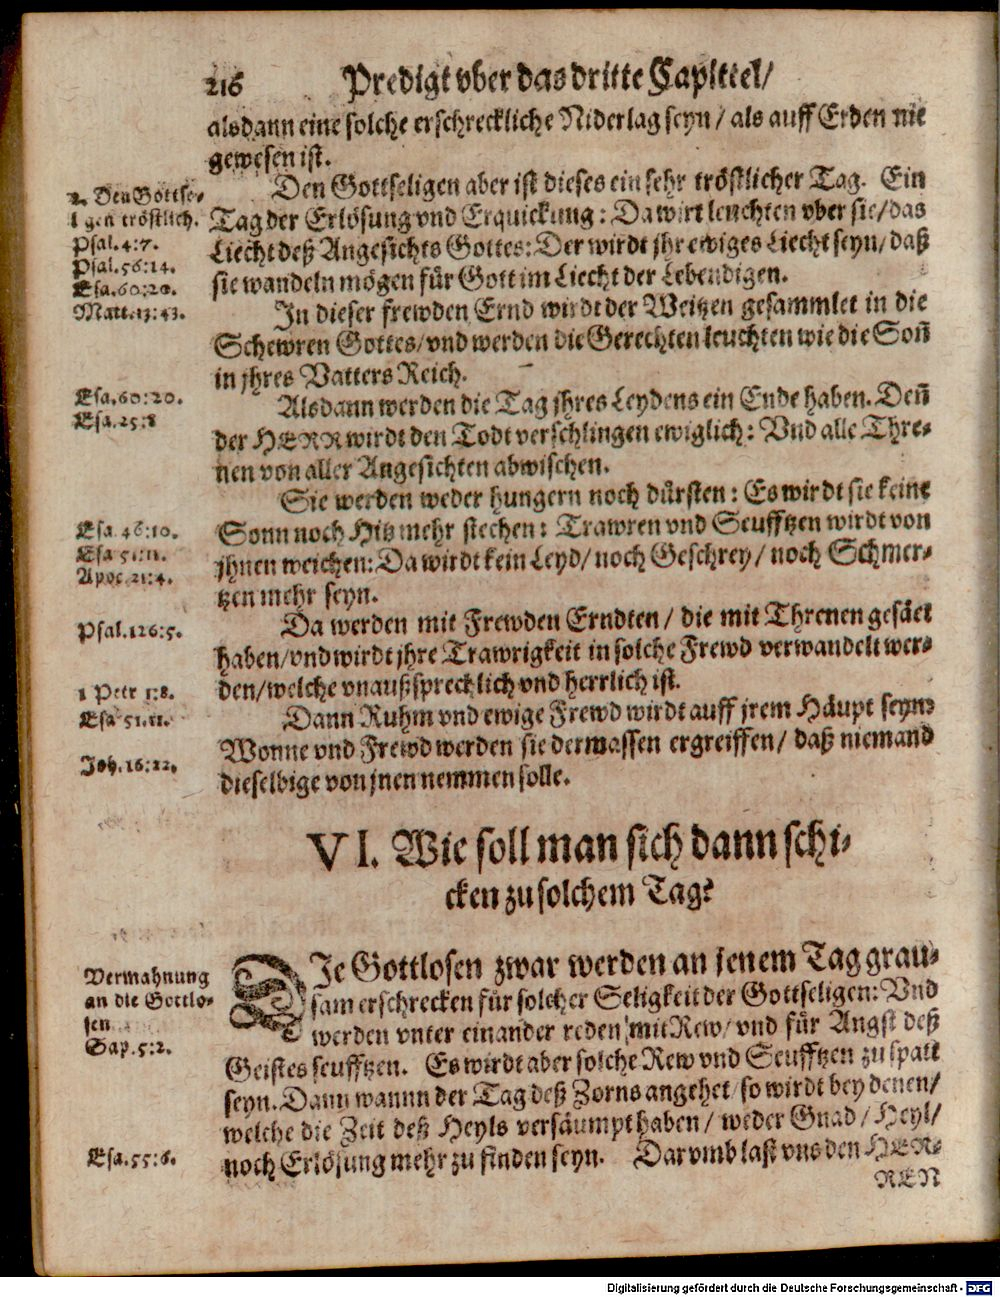 216 Predigt vber das dritte Capittel/
alsdann eine solche erschreckliche Niderlag seyn / als auff Erden nie
gewesen ist.
2. Den Gottse-
ligen tröstlich.
Psal. 4:7.
Psal. 56:14.
Esa. 60:20.
Matt. 13:43.
Den Gottseligen aber ist dieses ein sehr tröstlicher Tag. Ein
Tag der Erlösung vnd Erquickung: Da wirt leuchten vber sie/ das
Liecht deß Angesichts Gottes: Der wirdt jhr ewiges Liecht seyn/ daß
sie wandeln mögen für Gott im Liecht der Lebendigen.
In dieser frewden Ernd wirdt der Weitzen gesammlet in die
Schewren Gottes/ vnd werden die Gerechten leuchten wie die Soñ
in jhres Vatters Reich.
Esa. 60:20.
Esa. 25:8
Alsdann werden die Tag jhres Leydens ein Ende haben. Deñ
der HERR wirdt den Todt verschlingen ewiglich: Vnd alle Thre-
nen von aller Angesichten abwischen.
Sie werden weder hungern noch dürsten: Es wirdt sie keine
Sonn noch Hitz mehr stechen: Trawren vnd Seufftzen wirdt von
jhnen weichen: Da wirdt kein Leyd/ noch Geschrey/ noch Schmer-
tzen mehr seyn.
Esa. 46:10.
Esa 51:11.
Apoc. 21:4.
Da werden mit Frewden Erndten / die mit Threnen gesäet
haben/ vnd wirdt jhre Trawrigkeit in solche Frewd verwandelt wer-
den/ welche vnaußsprechlich vnd herrlich ist.
Psal. 126:5.
1 Petr 1:8.
Esa 51:11.
Dann Ruhm vnd ewige Frewd wirdt auff jrem Häupt seyn:
Wonne vnd Frewd werden sie dermassen ergreiffen/ daß niemand
dieselbige von jnen nemmen solle.
Joh. 16:22.
VI. Wie soll man sich dann schi-
cken zu solchem Tag?
Vermahnung
an die Gottlo-
sen
Sap. 5:2.
DJe Gottlosen zwar werden an jenem Tag grau-
sam erschrecken für solcher Seligkeit der Gottseligen: Vnd
werden vnter einander reden mit Rew/ vnd für Angst deß
Geistes seufftzen. Es wirdt aber solche Rew vnd Seufftzen zu spatt
seyn. Dann wannn der Tag deß Zorns angehet/ so wirdt bey denen/
welche die Zeit deß Heyls versäumpt haben / weder Gnad / Heyl/
noch Erlösung mehr zu finden seyn. Darvmb last vns den HER-
Esa. 55:6.
REN
Digitalisierung gefördert durch die Deutsche Forschungsgemeinschaft - DFG